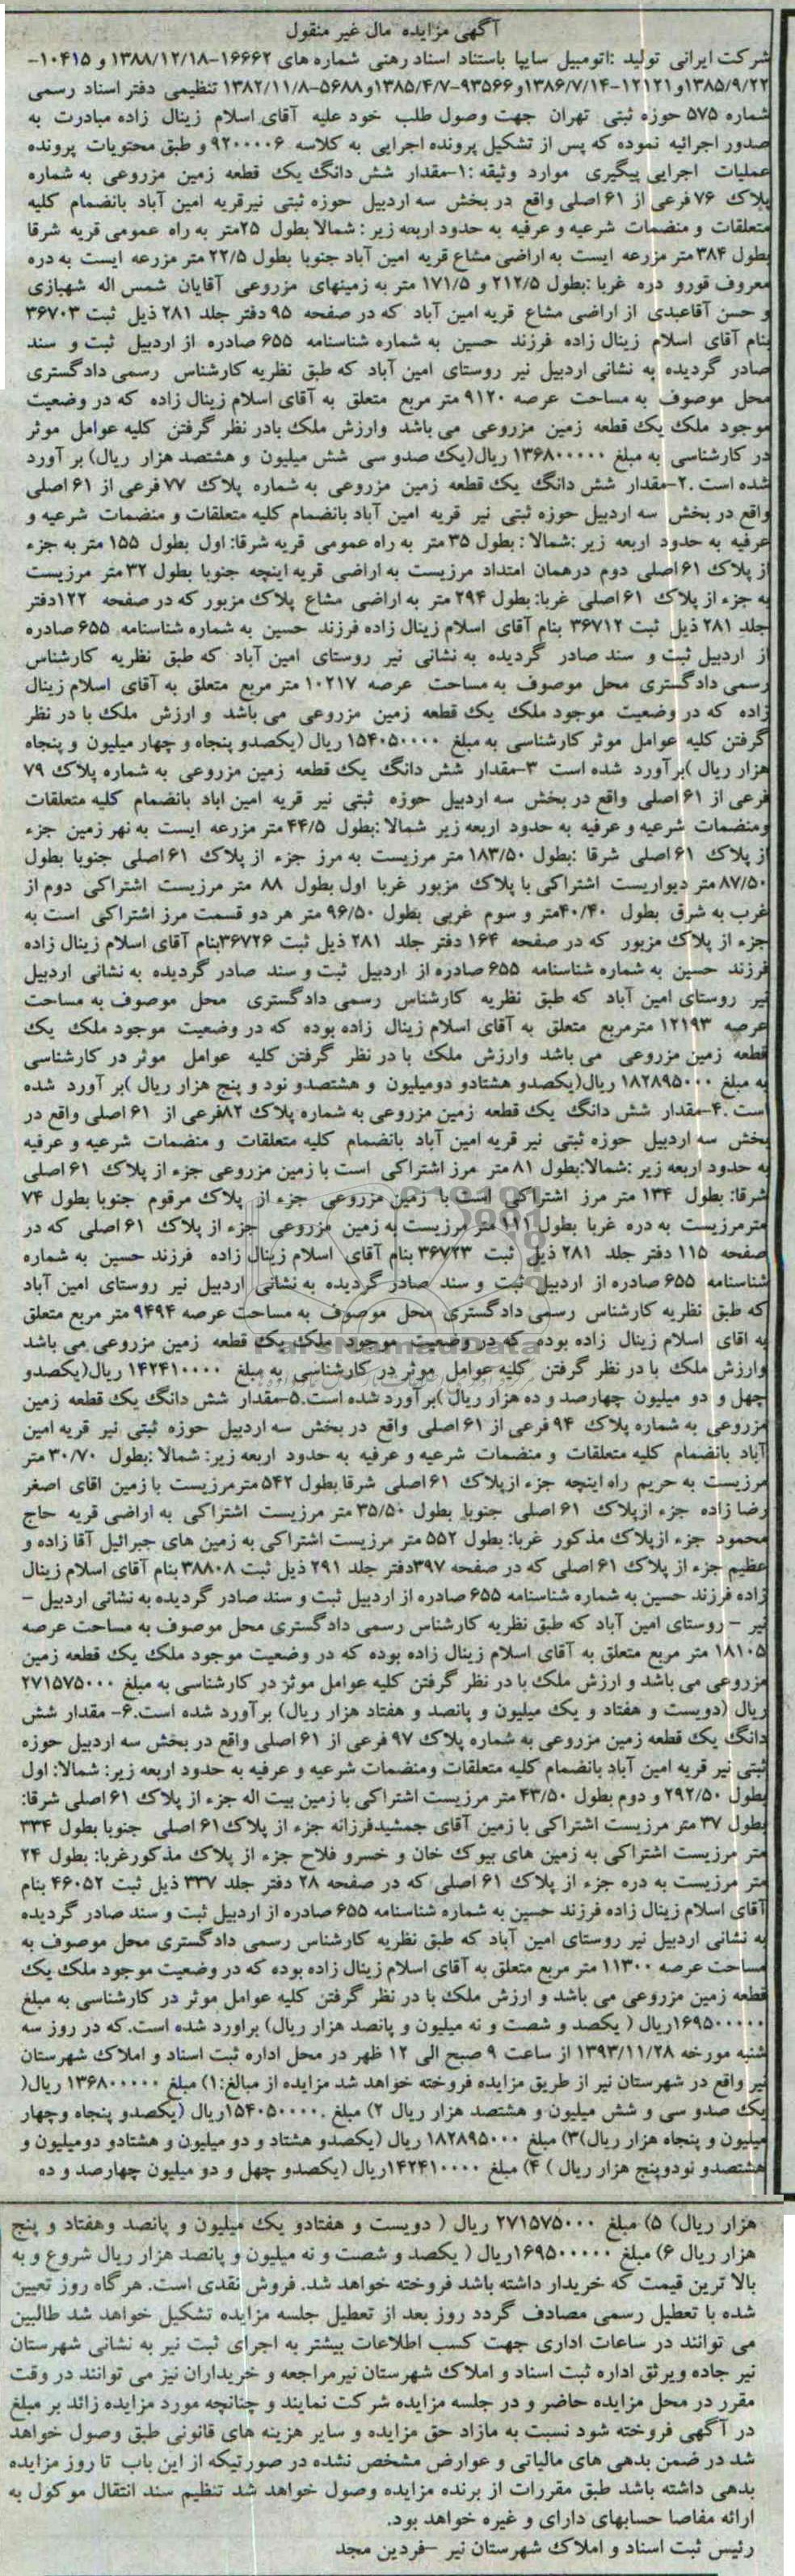 آگهی مزایده مال غیر منقول
شرکت ایرانی تولید :اتومبیل سایپا باستناد اسناد رهنی شماره های ۱۶۶۶۲-۱۳۸۸/۱۲/۱۸ و ۱۰۴۱۵-
۱۳۸۵/۹/۲۲و ۱۲۱۲۱-۱۳۸۶/۷/۱۴و ۹۳۵۶۶-۱۳۸۵/۴/۷و۵۶۸۸-۱۳۸۲/۱۱/۸ تنظیمی دفتر اسناد رسمی
شماره ۵۷۵ حوزه ثبتی تهران جهت وصول طلب خود علیه آقای اسلام زینال زاده مبادرت به
صدور اجرائیه نموده که پس از تشکیل پرونده اجرایی به کلاسه ۹۲۰۰۰۰۶ و طبق محتویات پرونده
عملیات اجرایی پیگیری موارد وثیقه :۱-مقدار شش دانگ یک قطعه زمین مزروعی به شماره
پلاک ۷۶ فرعی از ۶۱ اصلی واقع در بخش سه اردبیل حوزه ثبتی نیرقریه امین آباد بانضمام کلیه
متعلقات و منضمات شرعیه و عرفیه به حدود اربعه زیر : شمالا بطول ۲۵متر به راه عمومی قریه شرقا
بطول ۳۸۴ متر مزرعه ایست به اراضی مشاع قریه امین آباد جنوبا بطول ۲۲/۵ متر مزرعه ایست به دره
معروف قورو دره غربا :بطول ۲۱۲/۵ و ۱۷۱/۵ متر به زمینهای مزروعی آقایان شمس اله شهبازی
و حسن آقاعبدی از اراضی مشاع قریه امین آباد که در صفحه ۹۵ دفتر جلد ۲۸۱ ذیل ثبت ۳۶۷۰۳
بنام آقای اسلام زینال زاده فرزند حسین به شماره شناسنامه ۶۵۵ صادره از اردبیل ثبت و سند
صادر گردیده به نشانی اردبیل نیر روستای امین آباد که طبق نظریه کارشناس رسمی دادگستری
محل موصوف به مساحت عرصه ۹۱۲۰ متر مربع متعلق به آقای اسلام زینال زاده که در وضعیت
موجود ملک یک قطعه زمین مزروعی می باشد وارزش ملک بادر نظر گرفتن کلیه عوامل موثر
در کارشناسی به مبلغ ۱۳۶۸۰۰۰۰۰ ریال(یک صدو سی شش میلیون و هشتصد هزار ریال) بر آورد
شده است .۲-مقدار شش دانگ یک قطعه زمین مزروعی به شماره پلاک ۷۷ فرعی از ۶۱ اصلی
واقع در بخش سه اردبیل حوزه ثبتی نیر قریه امین آباد بانضمام کلیه متعلقات و منضمات شرعیه و
عرفیه به حدود اربعه زیر :شمالا : بطول ۳۵ متر به راه عمومی قریه شرقا: اول بطول ۱۵۵ متر به جزء
از پلاک ۶۱ اصلی دوم درهمان امتداد مرزیست به اراضی قریه اینچه جنوبا بطول ۳۲ متر مرزیست
به جزء از پلاک ۶۱ اصلی غربا: بطول ۲۹۴ متر به اراضی مشاع پلاک مزبور که در صفحه ۱۲۲دفتر
جلد ۲۸۱ ذیل ثبت ۳۶۷۱۲ بنام آقای اسلام زینال زاده فرزند حسین به شماره شناسنامه ۶۵۵ صادره
از اردبیل ثبت و سند صادر گردیده به نشانی نیر روستای امین آباد که طبق نظریه کارشناس
رسمی دادگستری محل موصوف به مساحت عرصه ۱۰۲۱۷ متر مربع متعلق به آقای اسلام زینال
زاده که در وضعیت موجود ملک یک قطعه زمین مزروعی می باشد و ارزش ملک با در نظر
گرفتن کلیه عوامل موثر کارشناسی به مبلغ ۱۵۴۰۵۰۰۰۰ ریال (یکصدو پنجاه و چهار میلیون و پنجاه
هزار ریال )برآورد شده است ۳-مقدار شش دانگ یک قطعه زمین مزروعی به شماره پلاک ۷۹
فرعی از ۶۱ اصلی واقع در بخش سه اردبیل حوزه ثبتی نیر قریه امین اباد بانضمام کلیه متعلقات
ومنضمات شرعیه و عرفیه به حدود اربعه زیر شمالا :بطول ۴۴/۵ متر مزرعه ایست به نهر زمین جزء
از پلاک ۶۱ اصلی شرقا :بطول ۱۸۳/۵۰ متر مرزیست به مرز جزء از پلاک ۶۱ اصلی جنوبا بطول
۸۷/۵۰ متر دیواریست اشتراکی با پلاک مزبور غربا اول بطول ۸۸ متر مرزیست اشتراکی دوم از
غرب به شرق بطول ۴۰/۴۰متر و سوم غربی بطول ۹۶/۵۰ متر هر دو قسمت مرز اشتراکی است به
جزء از پلاک مزبور که در صفحه ۱۶۴ دفتر جلد ۲۸۱ ذیل ثبت ۳۶۷۲۶بنام آقای اسلام زینال زاده
فرزند حسین به شماره شناسنامه ۶۵۵ صادره از اردبیل ثبت و سند صادر گردیده به نشانی اردبیل
نیر روستای امین آباد که طبق نظریه کارشناس رسمی دادگستری محل موصوف به مساحت
عرصه ۱۲۱۹۳ مترمربع متعلق به آقای اسلام زینال زاده بوده که در وضعیت موجود ملک یک
قطعه زمین مزروعی می باشد وارزش ملک با در نظر گرفتن کلیه عوامل موثر در کارشناسی
به مبلغ ۱۸۲۸۹۵۰۰۰ ریال(یکصدو هشتادو دومیلیون و هشتصدو نود و پنج هزار ریال )بر آورد شده
است .۴-مقدار شش دانگ یک قطعه زمین مزروعی به شماره پلاک ۸۲فرعی از ۶۱ اصلی واقع در
بخش سه اردبیل حوزه ثبتی نیر قریه امین آباد بانضمام کلیه متعلقات و منضمات شرعیه و عرفیه
به حدود اربعه زیر :شمالا:بطول ۸۱ متر مرز اشتراکی است با زمین مزروعی جزء از پلاک ۶۱ اصلی
شرقا: بطول ۱۳۴ متر مرز اشتراکی است با زمین مزروعی جزء از پلاک مرقوم جنوبا بطول ۷۴
مترمرزیست به دره غربا بطول ۱۱۱ متر مرزیست به زمین مزروعی جزء از پلاک ۶۱ اصلی که در
صفحه ۱۱۵ دفتر جلد ۲۸۱ ذیل ثبت ۳۶۷۲۳ بنام آقای اسلام زینال زاده فرزند حسین به شماره
شناسنامه ۶۵۵ صادره از اردبیل ثبت و سند صادر گردیده به نشانی اردبیل نیر روستای امین آباد
که طبق نظریه کارشناس رسمی دادگستری محل موصوف به مساحت عرصه ۹۴۹۴ متر مربع متعلق
به اقای اسلام زینال زاده بوده که در وضعیت موجود ملک یک قطعه زمین مزروعی می باشد
وارزش ملک با در نظر گرفتن کلیه عوامل موثر در کارشناسی به مبلغ ۱۴۲۴۱۰۰۰۰ ریال(یکصدو
چهل و دو میلیون چهارصد و ده هزار ریال )بر آورد شده است.۵-مقدار شش دانگ یک قطعه زمین
مزروعی به شماره پلاک ۹۴ فرعی از ۶۱ اصلی واقع در بخش سه اردبیل حوزه ثبتی نیر قریه امین
آباد بانضمام کلیه متعلقات و منضمات شرعیه و عرفیه به حدود اربعه زیر: شمالا :بطول ۳۰/۷۰ متر
مرزیست به حریم راه اینچه جزء ازپلاک ۶۱ اصلی شرقا بطول ۵۴۲ مترمرزیست با زمین اقای اصغر
رضا زاده جزء ازپلاک ۶۱ اصلی جنوبا بطول ۳۵/۵۰ متر مرزیست اشتراکی به اراضی قریه حاج
محمود جزء ازپلاک مذکور غربا: بطول ۵۵۲ متر مرزیست اشتراکی به زمین های جبرائیل آقا زاده و
عظیم جزء از پلاک ۶۱ اصلی که در صفحه ۳۹۷دفتر جلد ۲۹۱ ذیل ثبت ۳۸۸۰۸ بنام آقای اسلام زینال
زاده فرزند حسین به شماره شناسنامه ۶۵۵ صادره از اردبیل ثبت و سند صادر گردیده به نشانی اردبیل -
نیر - روستای امین آباد که طبق نظریه کارشناس رسمی دادگستری محل موصوف به مساحت عرصه
۱۸۱۰۵ متر مربع متعلق به آقای اسلام زینال زاده بوده که در وضعیت موجود ملک یک قطعه زمین
مزروعی می باشد و ارزش ملک با در نظر گرفتن کلیه عوامل موثر در کارشناسی به مبلغ ۲۷۱۵۷۵۰۰۰
ریال (دویست و هفتاد و یک میلیون و پانصد و هفتاد هزار ریال) برآورد شده است.۶- مقدار شش
دانگ یک قطعه زمین مزروعی به شماره پلاک ۹۷ فرعی از ۶۱ اصلی واقع در بخش سه اردبیل حوزه
ثبتی نیر قریه امین آباد بانضمام کلیه متعلقات ومنضمات شرعیه و عرفیه به حدود اربعه زیر: شمالا: اول
بطول ۲۹۲/۵۰ و دوم بطول ۴۳/۵۰ متر مرزیست اشتراکی با زمین بیت اله جزء از پلاک ۶۱ اصلی شرقا:
بطول ۳۷ متر مرزیست اشتراکی با زمین آقای جمشیدفرزانه جزء از پلاک ۶۱ اصلی جنوبا بطول ۳۳۴
متر مرزیست اشتراکی به زمین های بیوک خان و خسرو فلاح جزء از پلاک مذکورغربا: بطول ۲۴
متر مرزیست به دره جزء از پلاک ۶۱ اصلی که در صفحه ۲۸ دفتر جلد ۳۳۷ ذیل ثبت ۴۶۰۵۲ بنام
آقای اسلام زینال زاده فرزند حسین به شماره شناسنامه ۶۵۵ صادره از اردبیل ثبت و سند صادر گردیده
به نشانی اردبیل نیر روستای امین آباد که طبق نظریه کارشناس رسمی دادگستری محل موصوف به
مساحت عرصه ۱۱۳۰۰ متر مربع متعلق به آقای اسلام زینال زاده بوده که در وضعیت موجود ملک یک
قطعه زمین مزروعی می باشد و ارزش ملک با در نظر گرفتن کلیه عوامل موثر در کارشناسی به مبلغ
۱۶۹۵۰۰۰۰۰ریال ( یکصد و شصت و نه میلیون و پانصد هزار ریال) براورد شده است.که در روز سه
شنبه مورخه ۱۳۹۳/۱۱/۲۸ از ساعت ۹ صبح الی ۱۲ ظهر در محل اداره ثبت اسناد و املاک شهرستان
نیر واقع در شهرستان نیر از طریق مزایده فروخته خواهد شد مزایده از مبالغ:۱) مبلغ ۱۳۶۸۰۰۰۰۰ ریال(
یک صدو سی و شش میلیون و هشتصد هزار ریال ۲) مبلغ ۱۵۴۰۵۰۰۰۰.ریال (یکصدو پنجاه وچهار
میلیون و پنجاه هزار ریال)۳) مبلغ ۱۸۲۸۹۵۰۰۰ ریال (یکصدو هشتاد و دو میلیون و هشتادو دومیلیون و
هشتصدو نودوپنج هزار ریال ) ۴) مبلغ ۱۴۲۴۱۰۰۰۰ریال (یکصدو چهل و دو میلیون چهارصد و ده
هزار ریال) ۵) مبلغ ۲۷۱۵۷۵۰۰۰ ریال ( دویست و هفتادو یک میلیون و پانصد وهفتاد و پنج
هزار ریال ۶) مبلغ ۱۶۹۵۰۰۰۰۰ریال ( یکصد و شصت و نه میلیون و پانصد هزار ریال شروع و به
بالا ترین قیمت که خریدار داشته باشد فروخته خواهد شد. فروش نقدی است. هر گاه روز تعیین
شده با تعطیل رسمی مصادف گردد روز بعد از تعطیل جلسه مزایده تشکیل خواهد شد طالبین
می توانند در ساعات اداری جهت کسب اطلاعات بیشتر به اجرای ثبت نیر به نشانی شهرستان
نیر جاده ویرثق اداره ثبت اسناد و املاک شهرستان نیرمراجعه و خریداران نیز می توانند در وقت
مقرر در محل مزایده حاضر و در جلسه مزایده شرکت نمایند و چنانچه مورد مزایده زائد بر مبلغ
در آگهی فروخته شود نسبت به مازاد حق مزایده و سایر هزینه های قانونی طبق وصول خواهد
شد در ضمن بدهی های مالیاتی و عوارض مشخص نشده در صورتیکه از این باب تا روز مزایده
بدهی داشته باشد طبق مقررات از برنده مزایده وصول خواهد شد تنظیم سند انتقال موکول به
ارائه مفاصا حسابهای دارای و غیره خواهد بود.
رئیس ثبت اسناد و املاک شهرستان نیر -فردین مجد